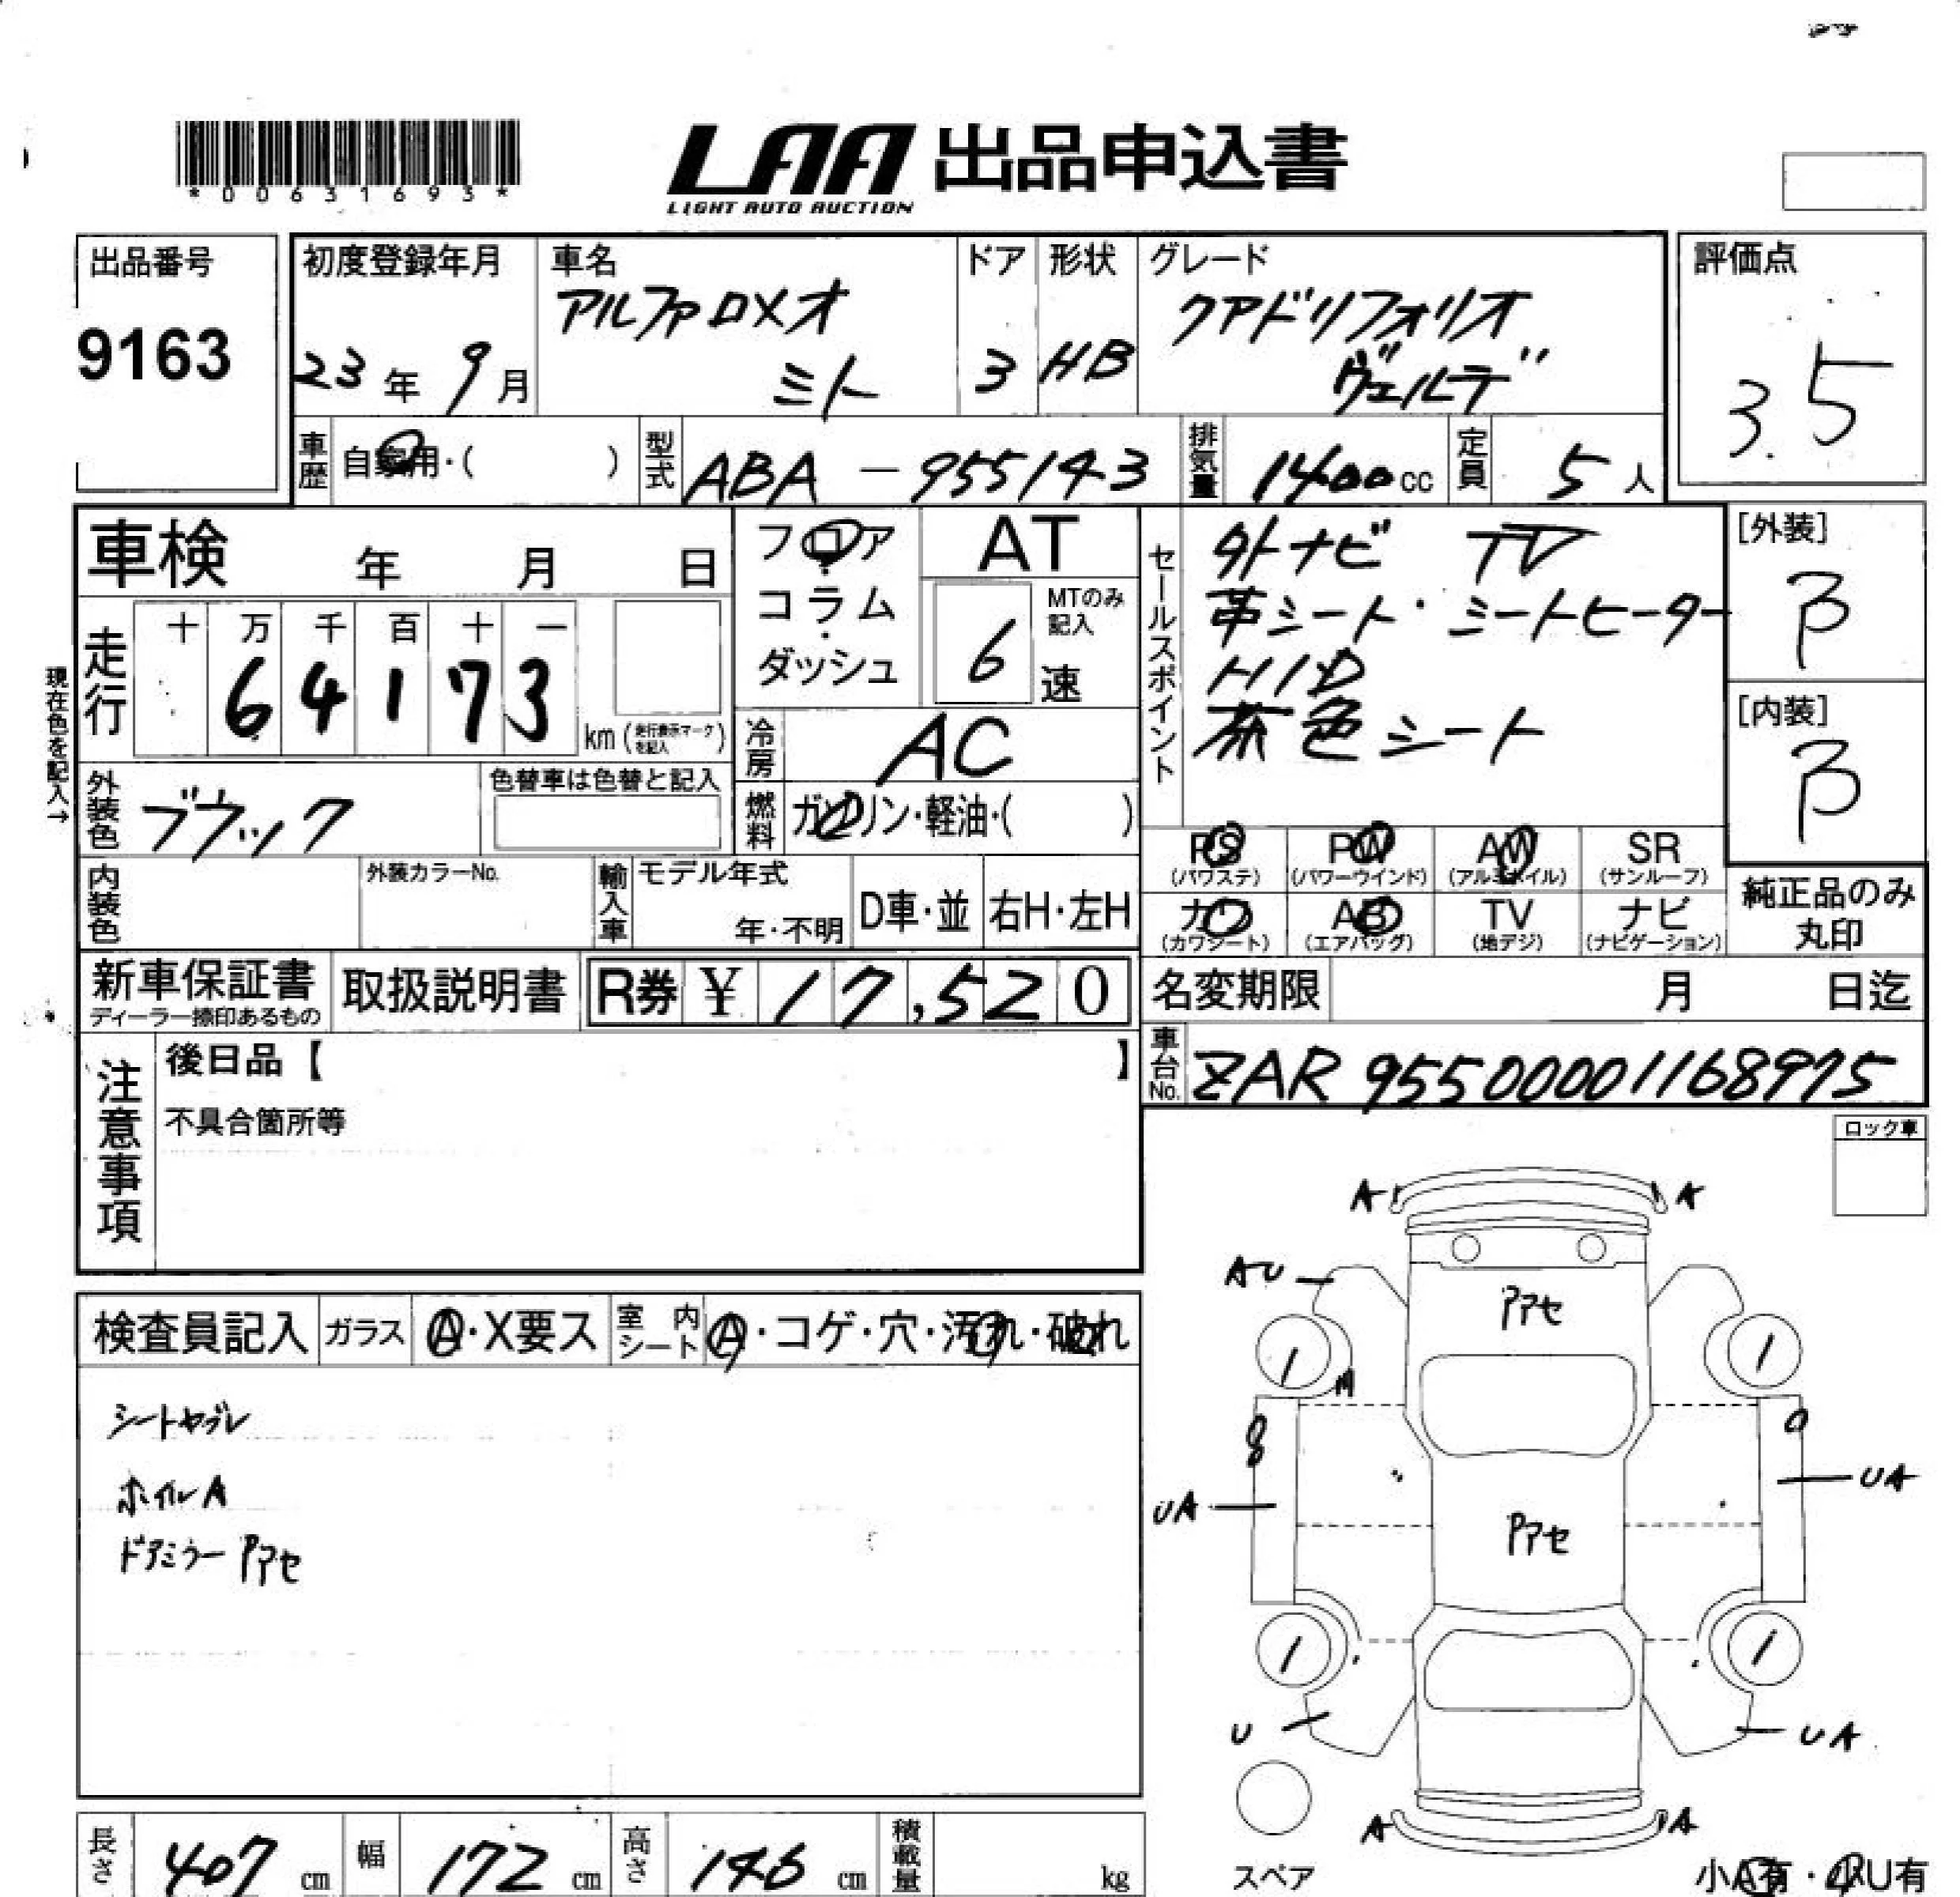 *00631693*
LAA 出品申込書
LIGHT AUTO AUCTION
出品番号
9163
初度登録年月
23年 9月
車名
アルファロメオ
ミト
ドア
3
形状
HB
グレード
クアドリフォリオ
ヴェルデ
評価点
3.5
車歴 自家用・( )
型式 ABA-955143
排気量 1400cc
定員 5人
車検 年 月 日
フロア・コラム・ダッシュ
AT
6 MTのみ記入
速
セールスポイント
外ナビ TV
革シート・シートヒーター
HID
茶色シート
[外装]
B
[内装]
B
現在色を記入→
走行
十 万 千 百 十 一
6 4 1 7 3
km(走行表示マークを記入)
冷房 AC
外装色 ブラック
色替車は色替と記入
燃料 ガソリン・軽油・( )
PS (パワステ)
PW (パワーウインド)
AW (アルミホイル)
SR (サンルーフ)
カワ (カワシート)
AB (エアバッグ)
TV (地デジ)
ナビ (ナビゲーション)
純正品のみ
丸印
内装色
外装カラーNo.
輸入車
モデル年式
年・不明
D車・並
右H・左H
新車保証書
ディーラー捺印あるもの
取扱説明書
R券 ¥ 17,520
名変期限 月 日迄
車台No. ZAR95500001168975
注意事項
後日品【 】
不具合箇所等
ロック車
検査員記入 ガラス A・X要ス 室内シート A・コゲ・穴・汚れ・破れ
シートヤブレ
ホイルA
ドアミラー Pアセ
A A
AU
Pアセ
1 1
UA UA
Pアセ
1 1
U UA
A A
スペア
小A有・小U有
長さ 407 cm
幅 172 cm
高さ 146 cm
積載量 kg